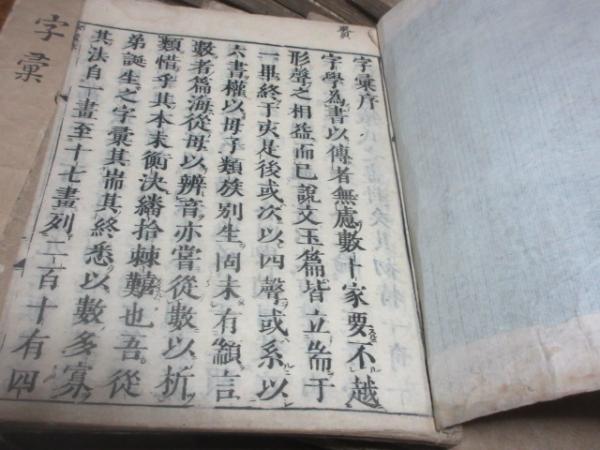 字彙序
字學為書以傳者無慮數十家要不越
形聲之相益而已說文玉篇皆立耑于
一畢終于亥是後或次以四聲或系以
六書權以母子類族別生固未有顓言
數者篇海從母以辨音亦嘗從數以析
類惜乎其本末衡決繙拾棘難也吾從
弟誕生之字彙其耑其終悉以數多寡
其法自一畫至十七畫列二百十有四
字彙